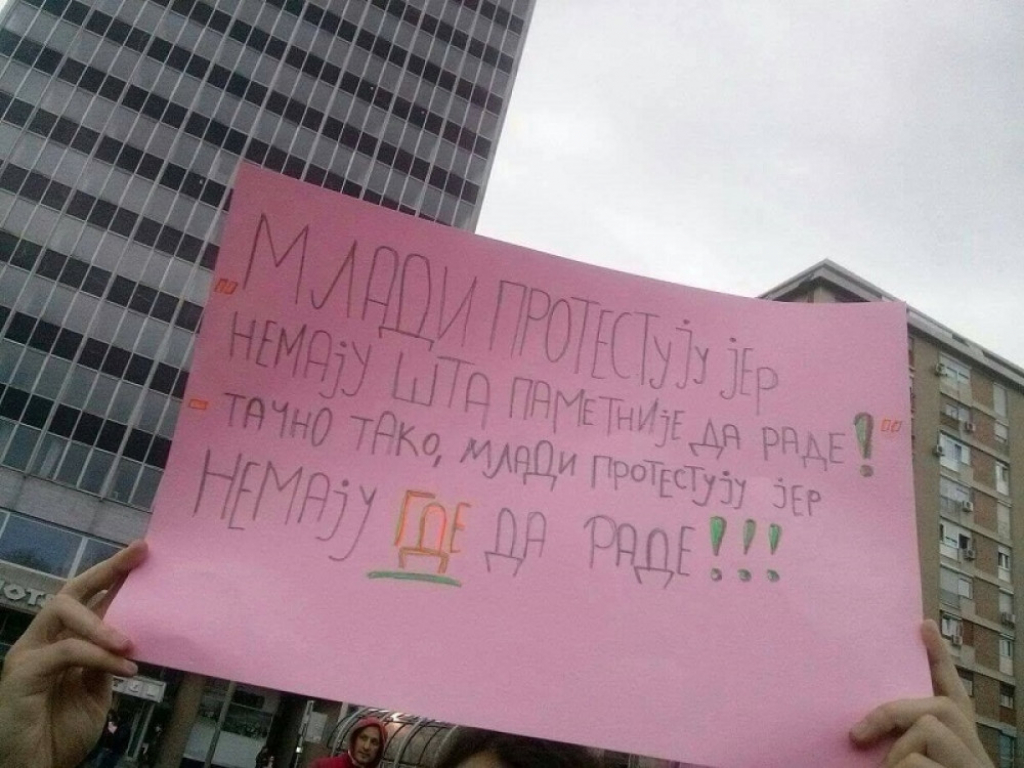 "МЛАДИ ПРОТЕСТУЈУ ЈЕР
НЕМАЈУ ШТА ПАМЕТНИЈЕ ДА РАДЕ!"
- ТАЧНО ТАКО, МЛАДИ ПРОТЕСТУЈУ ЈЕР
НЕМАЈУ ГДЕ ДА РАДЕ!!!